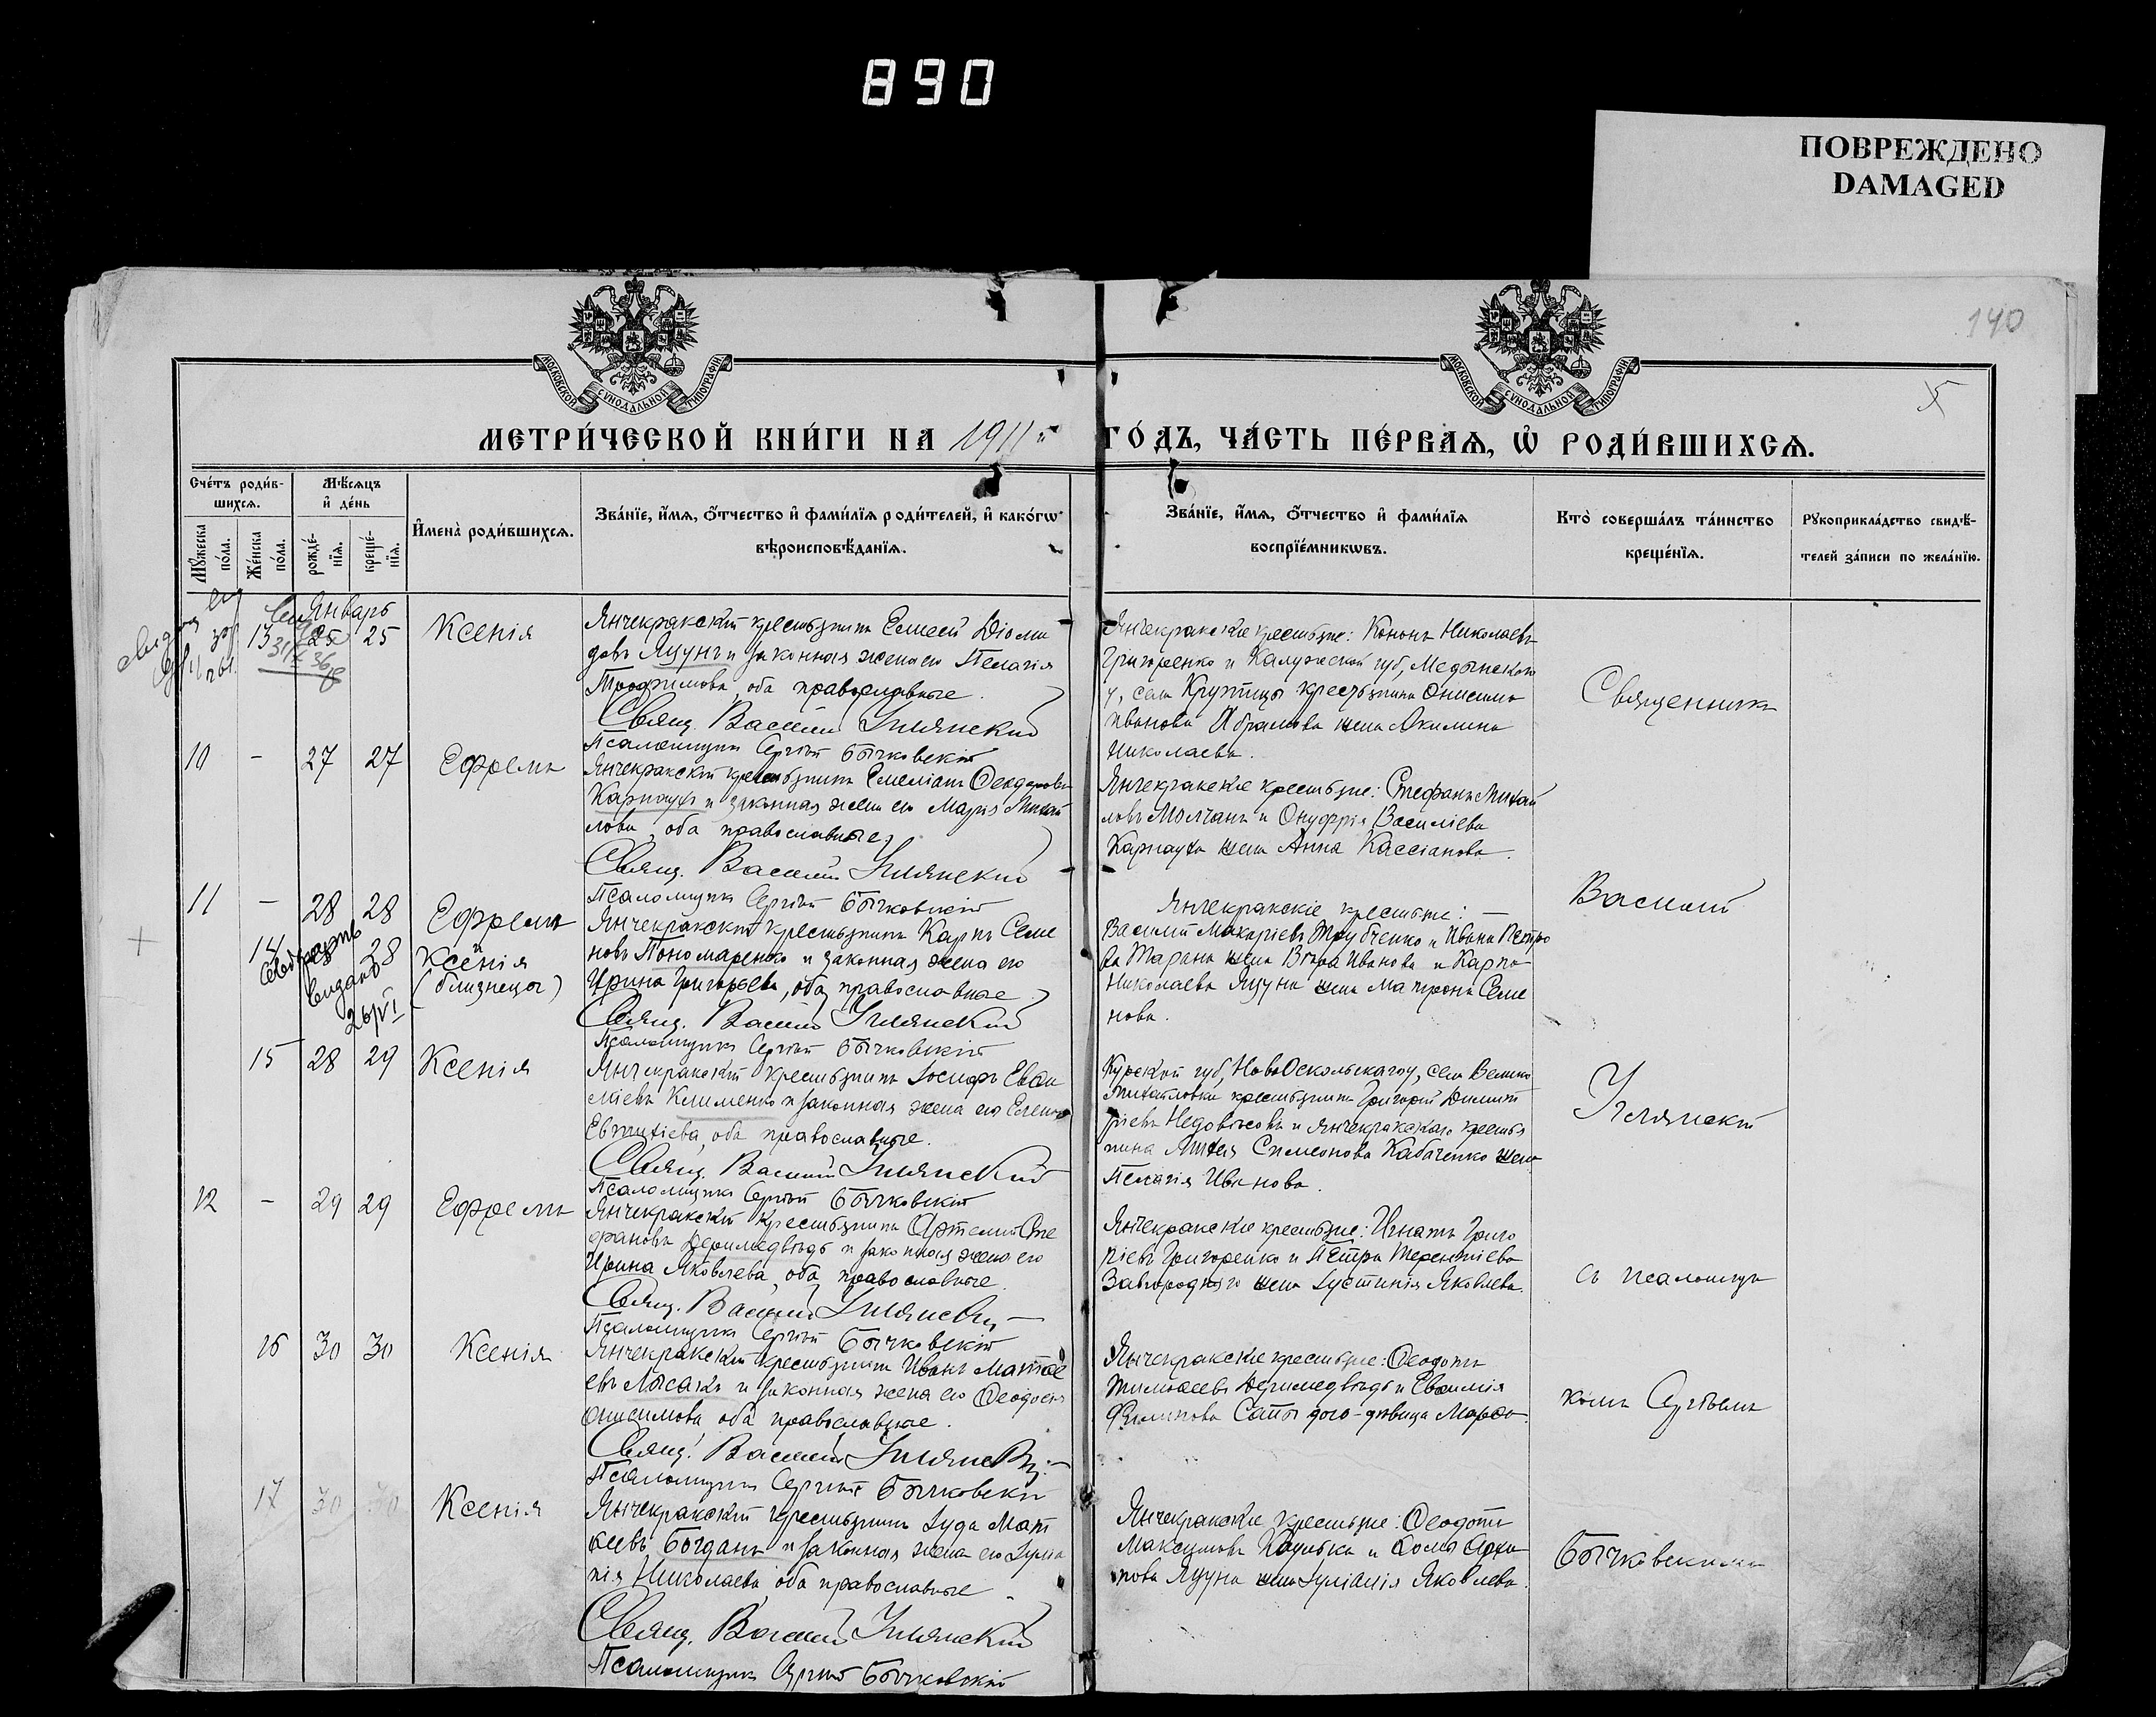 890
ПОВРЕЖДЕНО
DAMAGED
140
5
МОСКОВСКОЙ СУНОДАЛЬНОЙ ТИПОГРАФІИ
МОСКОВСКОЙ СУНОДАЛЬНОЙ ТИПОГРАФІИ
МЕТРИ́ЧЕСКОЙ КНИ́ГИ НА 1911й ГО́ДЪ, ЧА́СТЬ ПЕ́РВАѦ, Ѡ РОДИ́ВШИХСѦ.
Сче́тъ роди́в-
шихсѧ.
Мꙋжеска по́ла.
Же́нска по́ла.
Мѣ́сѧцъ
и҆ де́нь
рожде́-
нїѧ.
креще́-
нїѧ.
И҆мена̀ роди́вшихсѧ.
Зва́нїе, и҆́мѧ, ѻ҆́тчество и҆ фами́лїѧ роди́телей, и҆ како́гѡ
вѣроисповѣ́данїѧ.
Зва́нїе, и҆́мѧ, ѻ҆́тчество и҆ фами́лїѧ
воспрїе́мникѡвъ.
Кто̀ соверша́лъ та́инство
креще́нїѧ.
Рꙋкоприкла́дство свидѣ́-
телей за́писи по жела́нїю.
Январь
13 25 25 Ксенія
Янчекракскій крестьянинъ Елисей Діоми
довъ Яцунъ и законная жена его Пелагія
Трофимова, оба православные.
Свящ. Василій Уилянский
Псаломщикъ Сергій Бычковскій
Янчекракскіе крестьяне: Кононъ Николаевъ
Григоренко и Калужской губ, Медынскаго
у, села Крутицы крестьянина Онисима
Иванова Абрамова жена Акилина
Николаева.
10 - 27 27 Ефремъ
Янчекракскій крестьянинъ Емеліанъ Ѳеодоровъ
Карнаухъ и законная жена его Марія Михай
лова, оба православные,
Свящ. Василій
Псаломщикъ Сергій Бычковскій
Янчекракскіе крестьяне: Стефанъ Михай
ловъ Молчанъ и Онуфрія Василіева
Карнауха жена Анна Кассіанова.
11 - 28 28 Ефремъ
14 28 и Ксенія
(близнецы)
видано
26/VI
Янчекракскій крестьянинъ Карпъ Семе
новъ Пономаренко и законная жена его
Ирина Григорьева, оба православные
Свящ. Василій
Псаломщикъ Сергій Бычковскій
Янчекракскіе крестьяне: —
Василій Макаріевъ Трубченко и Ивана Петро
ва Тарана жена Вѣра Иванова и Карпа
Николаева Яцуна жена Матрона Семе
нова.
15 28 29 Ксенія
Янчекракскій крестьянинъ Іосифъ Евѳи
міевъ Клименко и законная жена его Елена
Евтихіева, оба православные.
Свящ. Василій
Псаломщикъ Сергій Бычковскій
Курской губ, НовоОскольскаго у, села Велико
михайловки крестьянинъ Григорій Димит
ріевъ и Янчекракскаго крестья
нина Михея Симеонова Кабаченко жена
Пелагія Иванова.
12 - 29 29 Ефремъ
Янчекракскій крестьянинъ Артемій Сте
фановъ Деримедвѣдь и законная жена его
Ирина Яковлева, оба православные.
Свящ. Василій
Псаломщикъ Сергій Бычковскій
Янчекракскіе крестьяне: Игнатъ Григо
ріевъ Григоренко и Петра Терентіева
Завгородняго жена Іустинія Яковлева.
16 30 30 Ксенія
Янчекракскій крестьянинъ Иванъ Матѳе
евъ Лысакъ и законная жена его Ѳеодосія
Онисимова, оба православные.
Свящ. Василій
Псаломщикъ Сергій Бычковскій
Янчекракскіе крестьяне: Ѳеодотъ
Тимоѳеевъ Деримедвѣдь и Евѳимія
Филипова дѣвица Марѳа.
17 30 30 Ксенія
Янчекракскій крестьянинъ Іуда Мат
ѳеевъ Богданъ и законная жена его Іулiа
нія Николаева, оба православные
Свящ. Василій
Псаломщикъ Сергій Бычковскій
Янчекракскіе крестьяне: Ѳеодотъ
Максимовъ и Ѳомы Архи
пова Яцуна жена Іуліанія Яковлева.
Священникъ
Василій
съ псаломщи
комъ Сергіемъ
Бычковскимъ